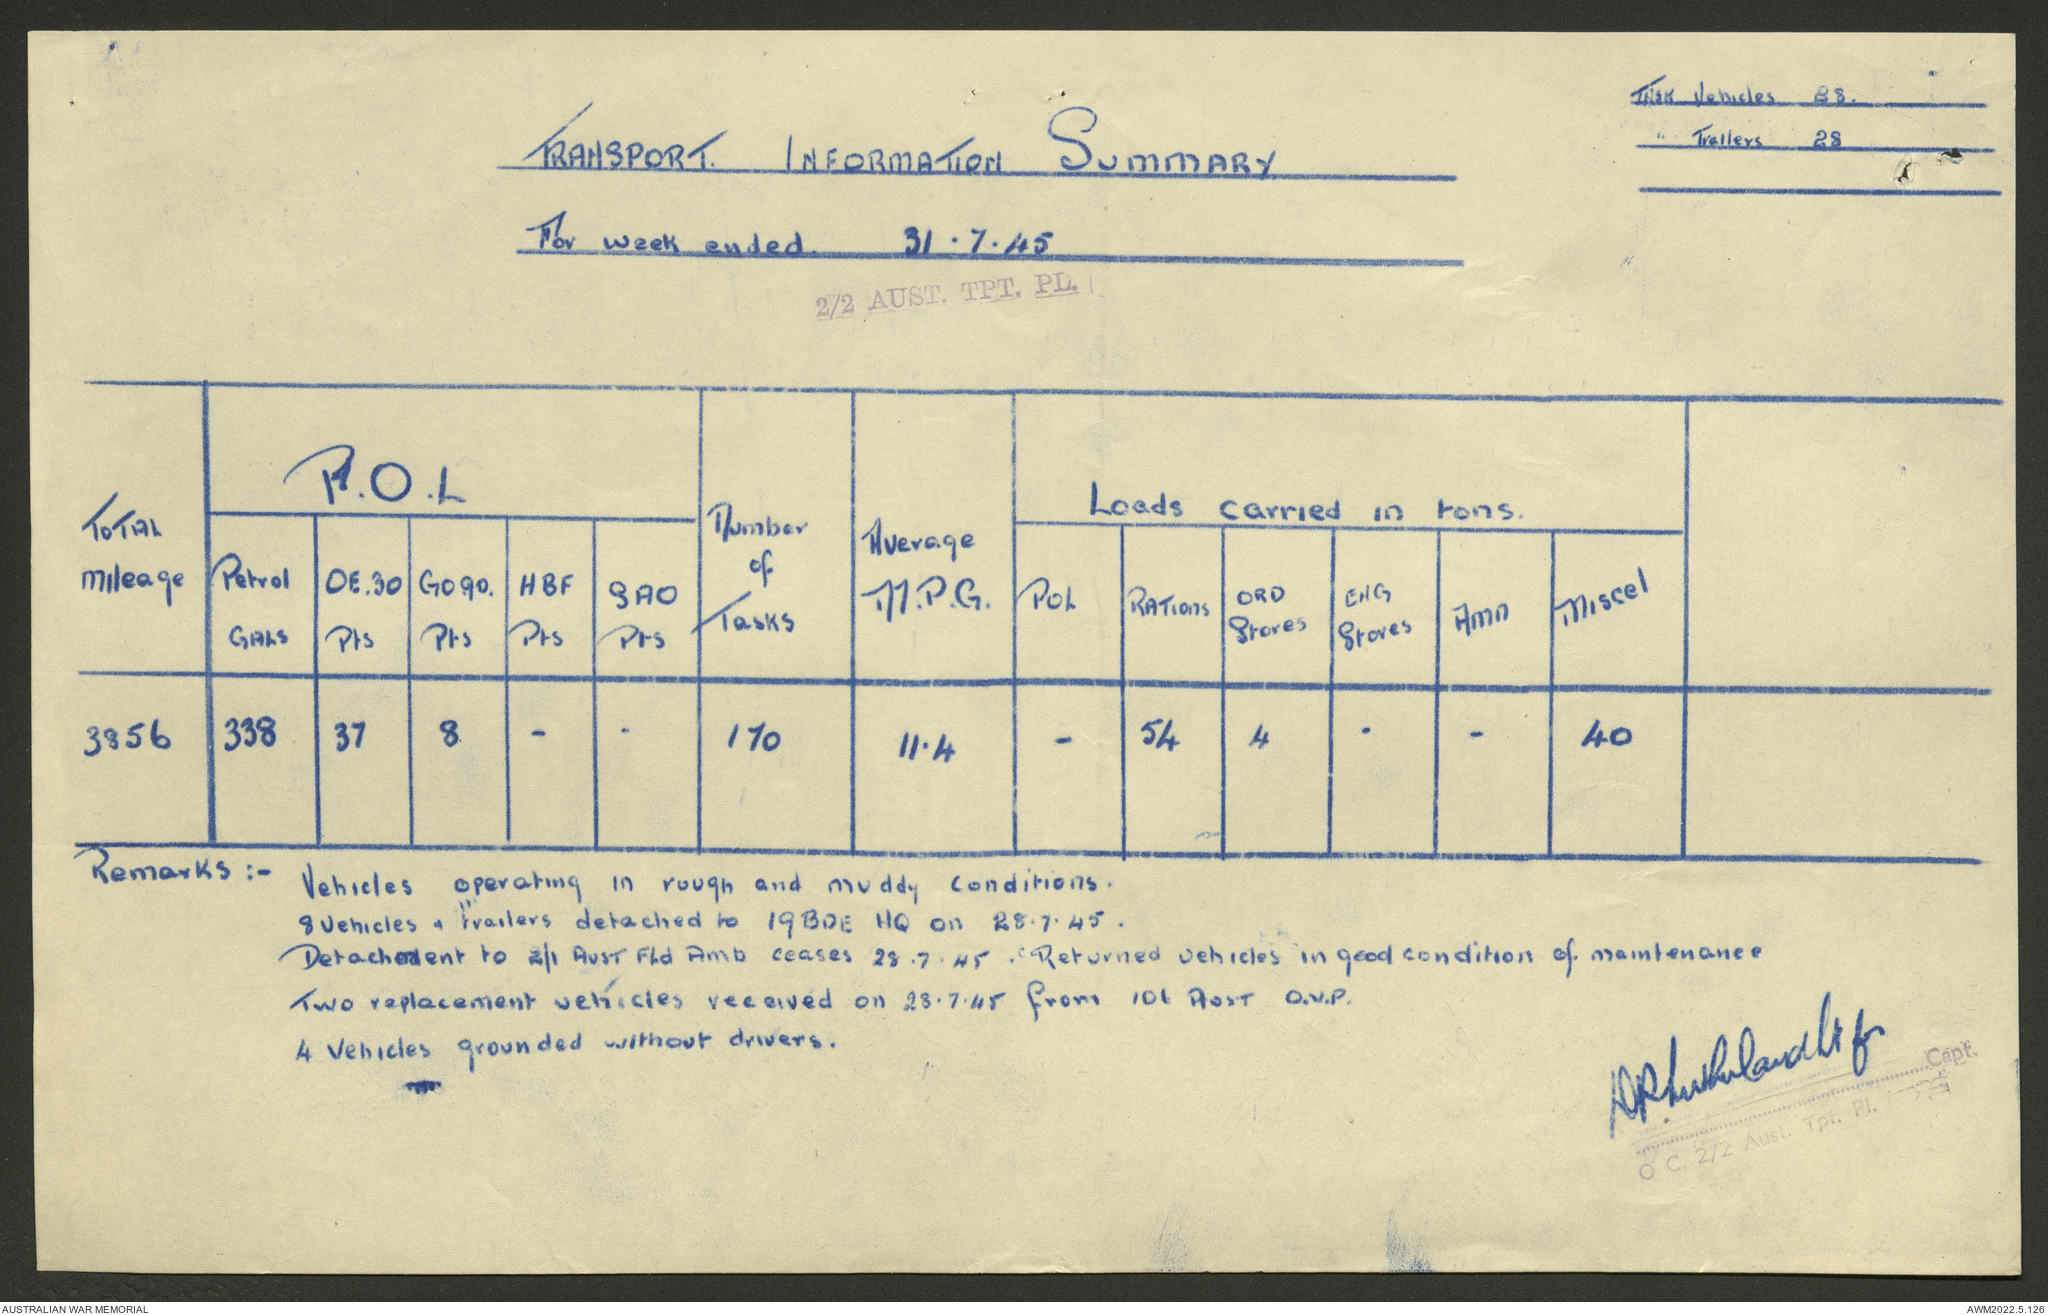 Task Vehicles 28.
" Trailers 28
TRANSPORT. INFORMATION SUMMARY
For week ended. 31.7.45
2/2 AUST. TPT. PL.
Total mileage
P.O.L
Petrol GALS
OE.30 Pts
GO90. Pts
HBF Pts
SAO Pts
Number of Tasks
Average M.P.G.
Loads carried in tons.
POL
RATIONS
ORD Stores
ENG Stores
Amn
Miscel
3856 338 37 8 - - 170 11.4 - 54 4 - - 40
Remarks :- Vehicles operating in rough and muddy conditions.
8 Vehicles & Trailers detached to 19 BDE HQ on 28.7.45.
Detachment to 2/1 AUST Fld Amb ceases 28.7.45. Returned vehicles in good condition of maintenance
Two replacement vehicles received on 28.7.45 from Aust O.V.P.
4 Vehicles grounded without drivers.
Lt for
Capt.
O C. 2/2 Aust. Tpt. Pl.
AUSTRALIAN WAR MEMORIAL
AWM2022.5.126